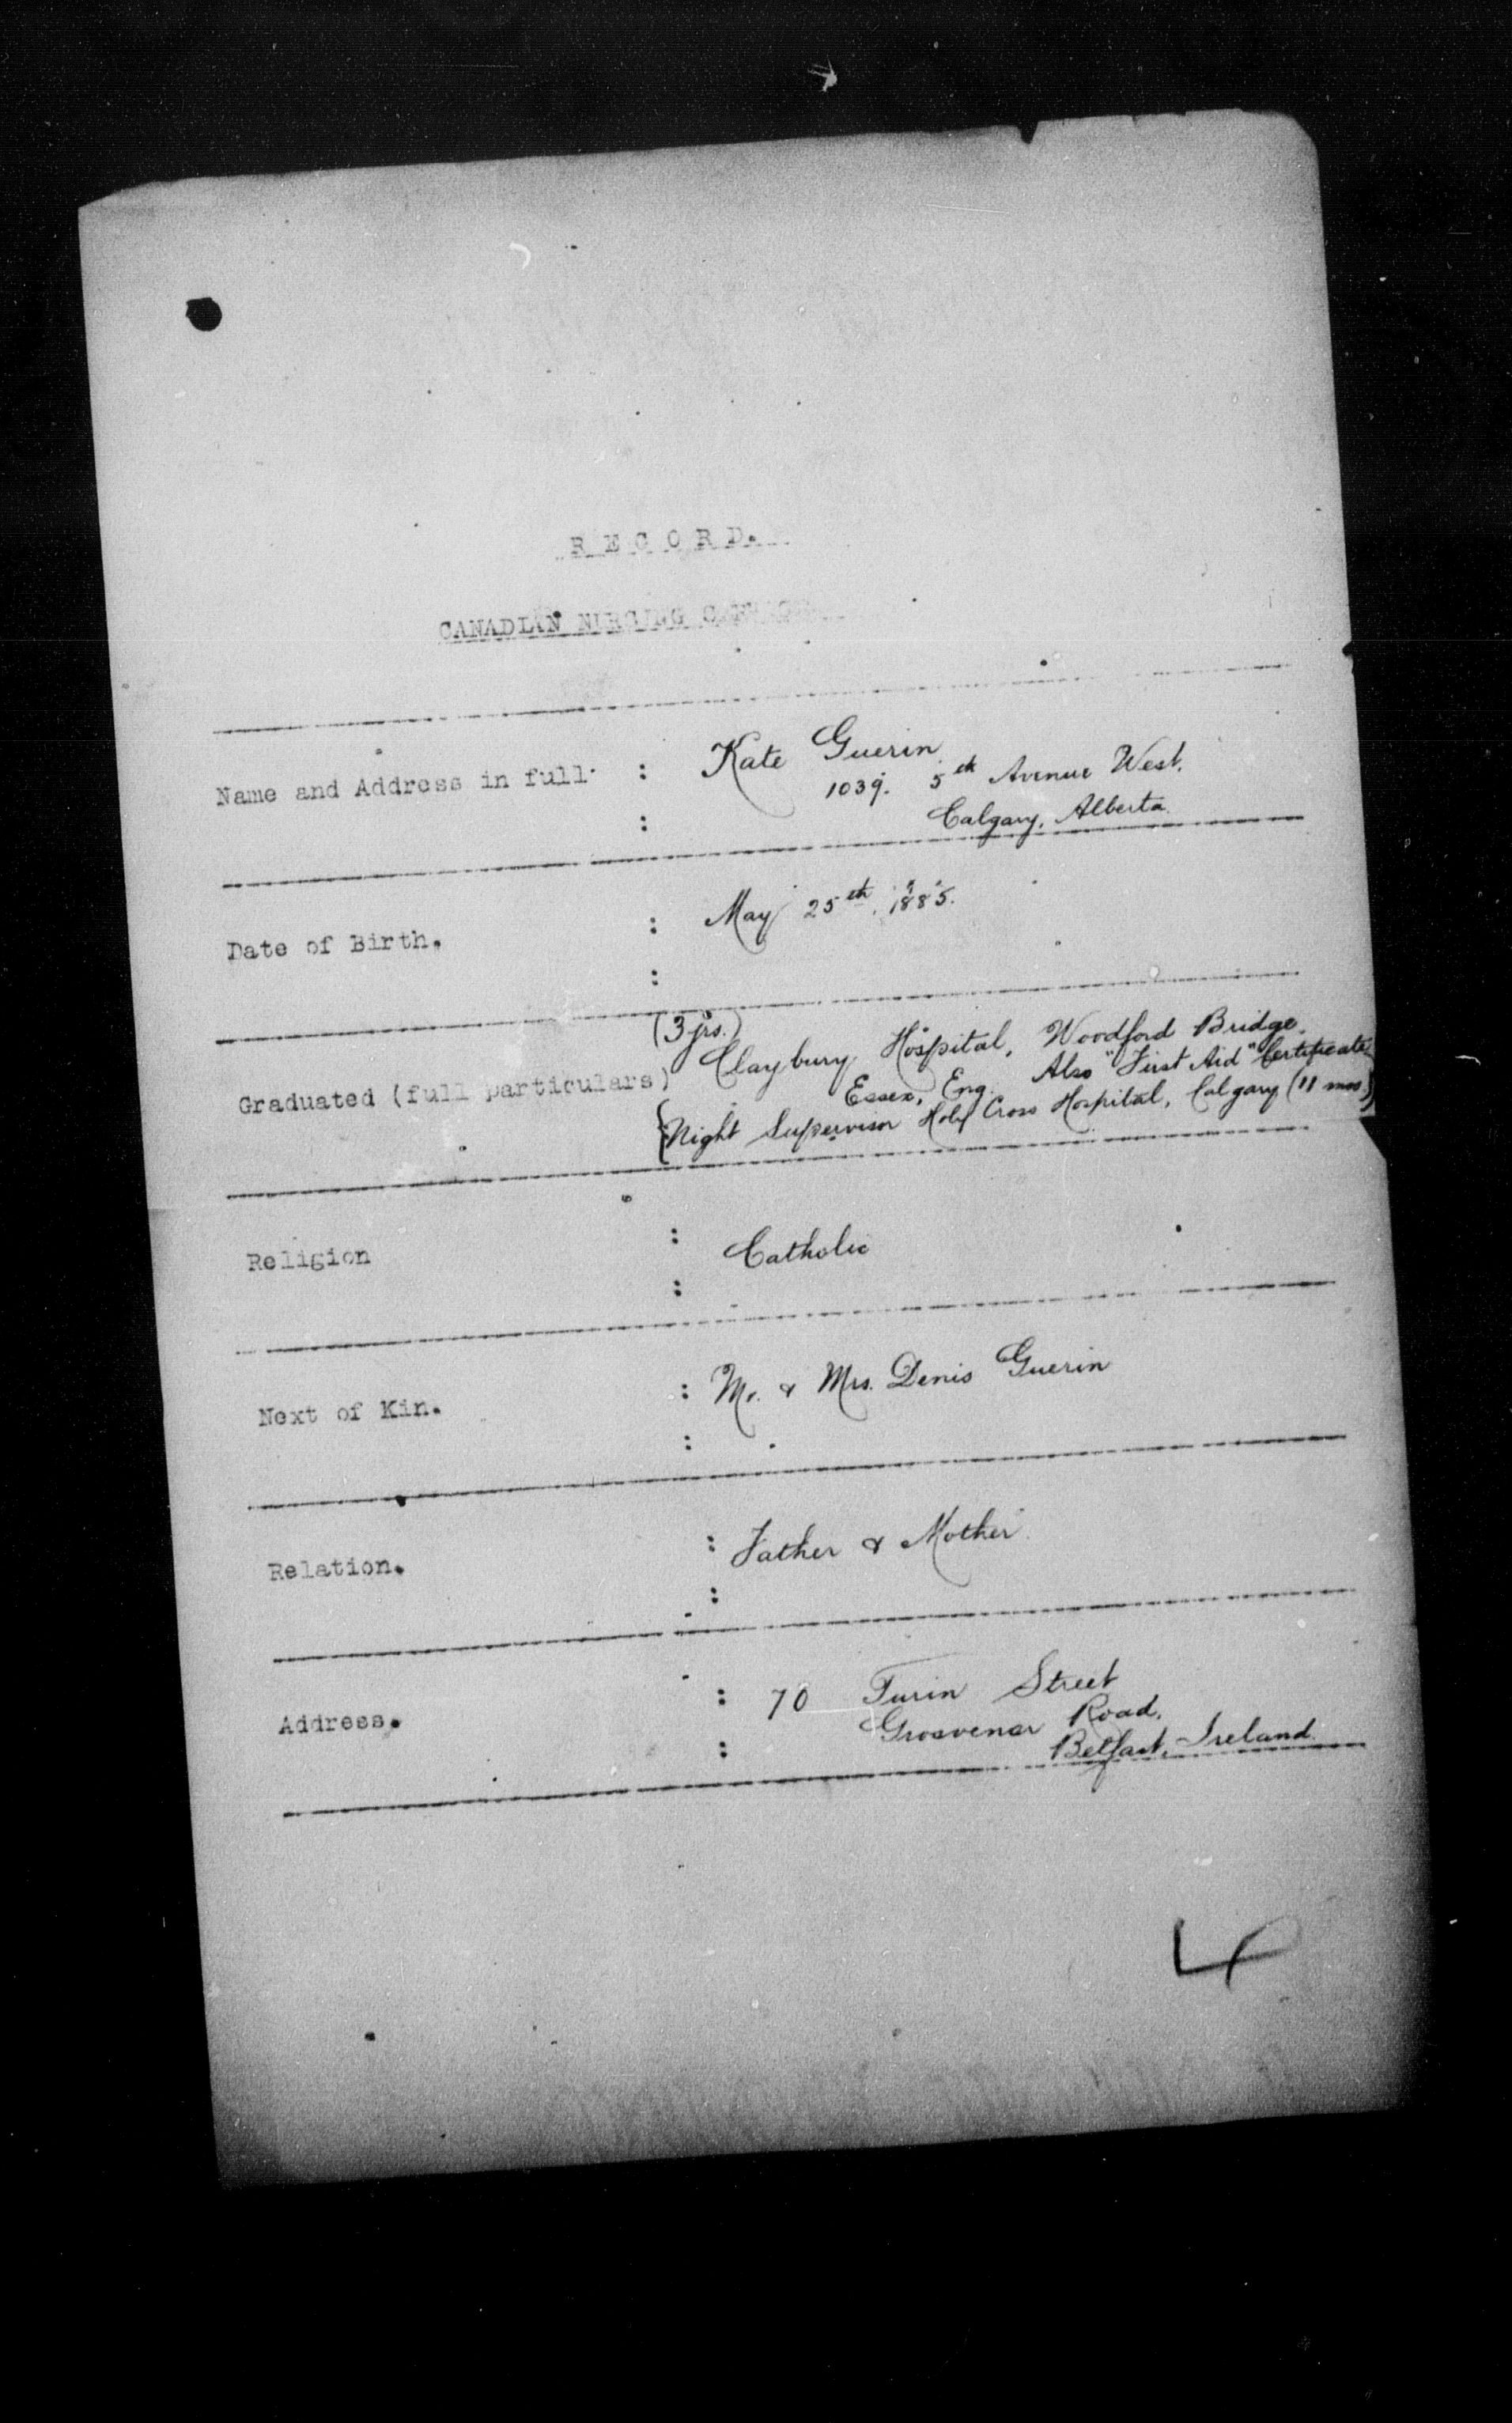 RECORD.
CANADIAN NURSING
Name and Address in full : Kate Guerin
: 1039. 5th Avenue West.
Calgary, Alberta.
Date of Birth. : May 25th, 1885.
:
(3 yrs.)
Graduated (full particulars) Claybury Hospital, Woodford Bridge,
Essex, Eng. Also "First Aid" Certificate
Night Supervisor Holy Cross Hospital, Calgary (11 mos.)
Religion : Catholic
:
Next of Kin. : Mr. & Mrs. Denis Guerin
:
Relation. : Father & Mother.
:
Address. : 70 Turin Street
: Grosvenor Road,
Belfast, Ireland.
4